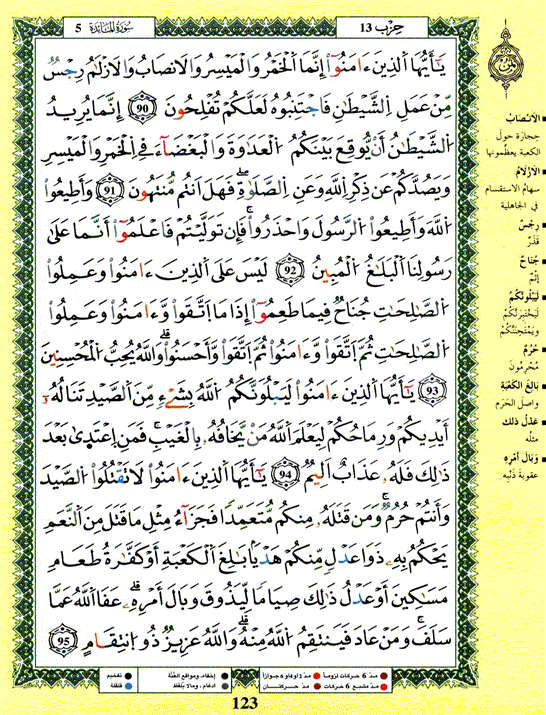 سُورَةُ المَائِدَة 5
حِزْب 13
يَٰٓأَيُّهَا ٱلذِينَ ءَامَنُوٓا۟ إِنَّمَا ٱلْخَمْرُ وَٱلْمَيْسِرُ وَٱلَانصَابُ وَٱلَازْلَٰمُ رِجْسٌ
مِّنْ عَمَلِ ٱلشَّيْطَٰنِ فَٱجْتَنِبُوهُ لَعَلَّكُمْ تُفْلِحُونَ 90 إِنَّمَا يُرِيدُ
ٱلشَّيْطَٰنُ أَنْ يُّوقِعَ بَيْنَكُمُ ٱلْعَدَٰوَةَ وَٱلْبَغْضَآءَ فِے ٱلْخَمْرِ وَٱلْمَيْسِرِ
وَيَصُدَّكُمْ عَن ذِكْرِ ٱللَّهِ وَعَنِ ٱلصَّلَوٰةِ فَهَلَ اَنتُم مُّنتَهُونَ 91 وَأَطِيعُوا۟
ٱللَّهَ وَأَطِيعُوا۟ ٱلرَّسُولَ وَٱحْذَرُوا۟ۖ فَإِن تَوَلَّيْتُمْ فَٱعْلَمُوٓا۟ أَنَّمَا عَلَىٰ
رَسُولِنَا ٱلْبَلَٰغُ ٱلْمُبِينُ 92 لَيْسَ عَلَى ٱلذِينَ ءَامَنُوا۟ وَعَمِلُوا۟
ٱلصَّٰلِحَٰتِ جُنَاحٌ فِيمَا طَعِمُوٓا۟ إِذَا مَا ٱتَّقَوا۟ وَّءَامَنُوا۟ وَعَمِلُوا۟
ٱلصَّٰلِحَٰتِ ثُمَّ ٱتَّقَوا۟ وَّءَامَنُوا۟ ثُمَّ ٱتَّقَوا۟ وَّأَحْسَنُوا۟ۖ وَٱللَّهُ يُحِبُّ ٱلْمُحْسِنِينَ
93 يَٰٓأَيُّهَا ٱلذِينَ ءَامَنُوا۟ لَيَبْلُوَنَّكُمُ ٱللَّهُ بِشَےْءٍ مِّنَ ٱلصَّيْدِ تَنَالُهُۥٓ
أَيْدِيكُمْ وَرِمَاحُكُمْ لِيَعْلَمَ ٱللَّهُ مَنْ يَّخَافُهُۥ بِٱلْغَيْبِۖ فَمَنِ ٱعْتَدَىٰ بَعْدَ
ذَٰلِكَ فَلَهُۥ عَذَابٌ اَلِيمٌ 94 يَٰٓأَيُّهَا ٱلذِينَ ءَامَنُوا۟ لَا تَقْتُلُوا۟ ٱلصَّيْدَ
وَأَنتُمْ حُرُمٌۖ وَمَن قَتَلَهُۥ مِنكُم مُّتَعَمِّدًا فَجَزَآءُ مِثْلِ مَا قَتَلَ مِنَ ٱلنَّعَمِ
يَحْكُمُ بِهِۦ ذَوَا عَدْلٍ مِّنكُمْ هَدْيَۢا بَٰلِغَ ٱلْكَعْبَةِ أَوْ كَفَّٰرَةُ طَعَامِ
مَسَٰكِينَ أَوْ عَدْلُ ذَٰلِكَ صِيَامًا لِّيَذُوقَ وَبَالَ أَمْرِهِۦۖ عَفَا ٱللَّهُ عَمَّا
سَلَفَۖ وَمَنْ عَادَ فَيَنتَقِمُ ٱللَّهُ مِنْهُۖ وَٱللَّهُ عَزِيزٌ ذُو ٱنتِقَامٍ 95
الأَنْصَابُ
حجارة حول
الكعبة يعظّمونها
الأَزْلَامُ
سهامُ الاستقسام
في الجاهلية
رِجْسٌ
قَذَرٌ
جُنَاحٌ
إثْمٌ
لَيَبْلُوَنَّكُمْ
لَيَخْتَبِرَنَّكُمْ
وَيَمْتَحِنَنَّكُمْ
حُرُمٌ
مُحْرِمُونَ
بَالِغَ الكَعْبَةِ
واصلَ الحَرَم
عَدْلُ ذلك
مثلُه
وَبَالَ أمْرِهِ
عقوبةَ ذَنْبِه
مدّ 6 حركات لزوماً
مدّ 2 أو 4 أو 6 جوازاً
إخفاء، ومواقع الغُنَّة
تفخيم
مدّ مشبع 6 حركات
مدّ حركتان
ادغام، وما لا يُلفَظ
قلقلة
123